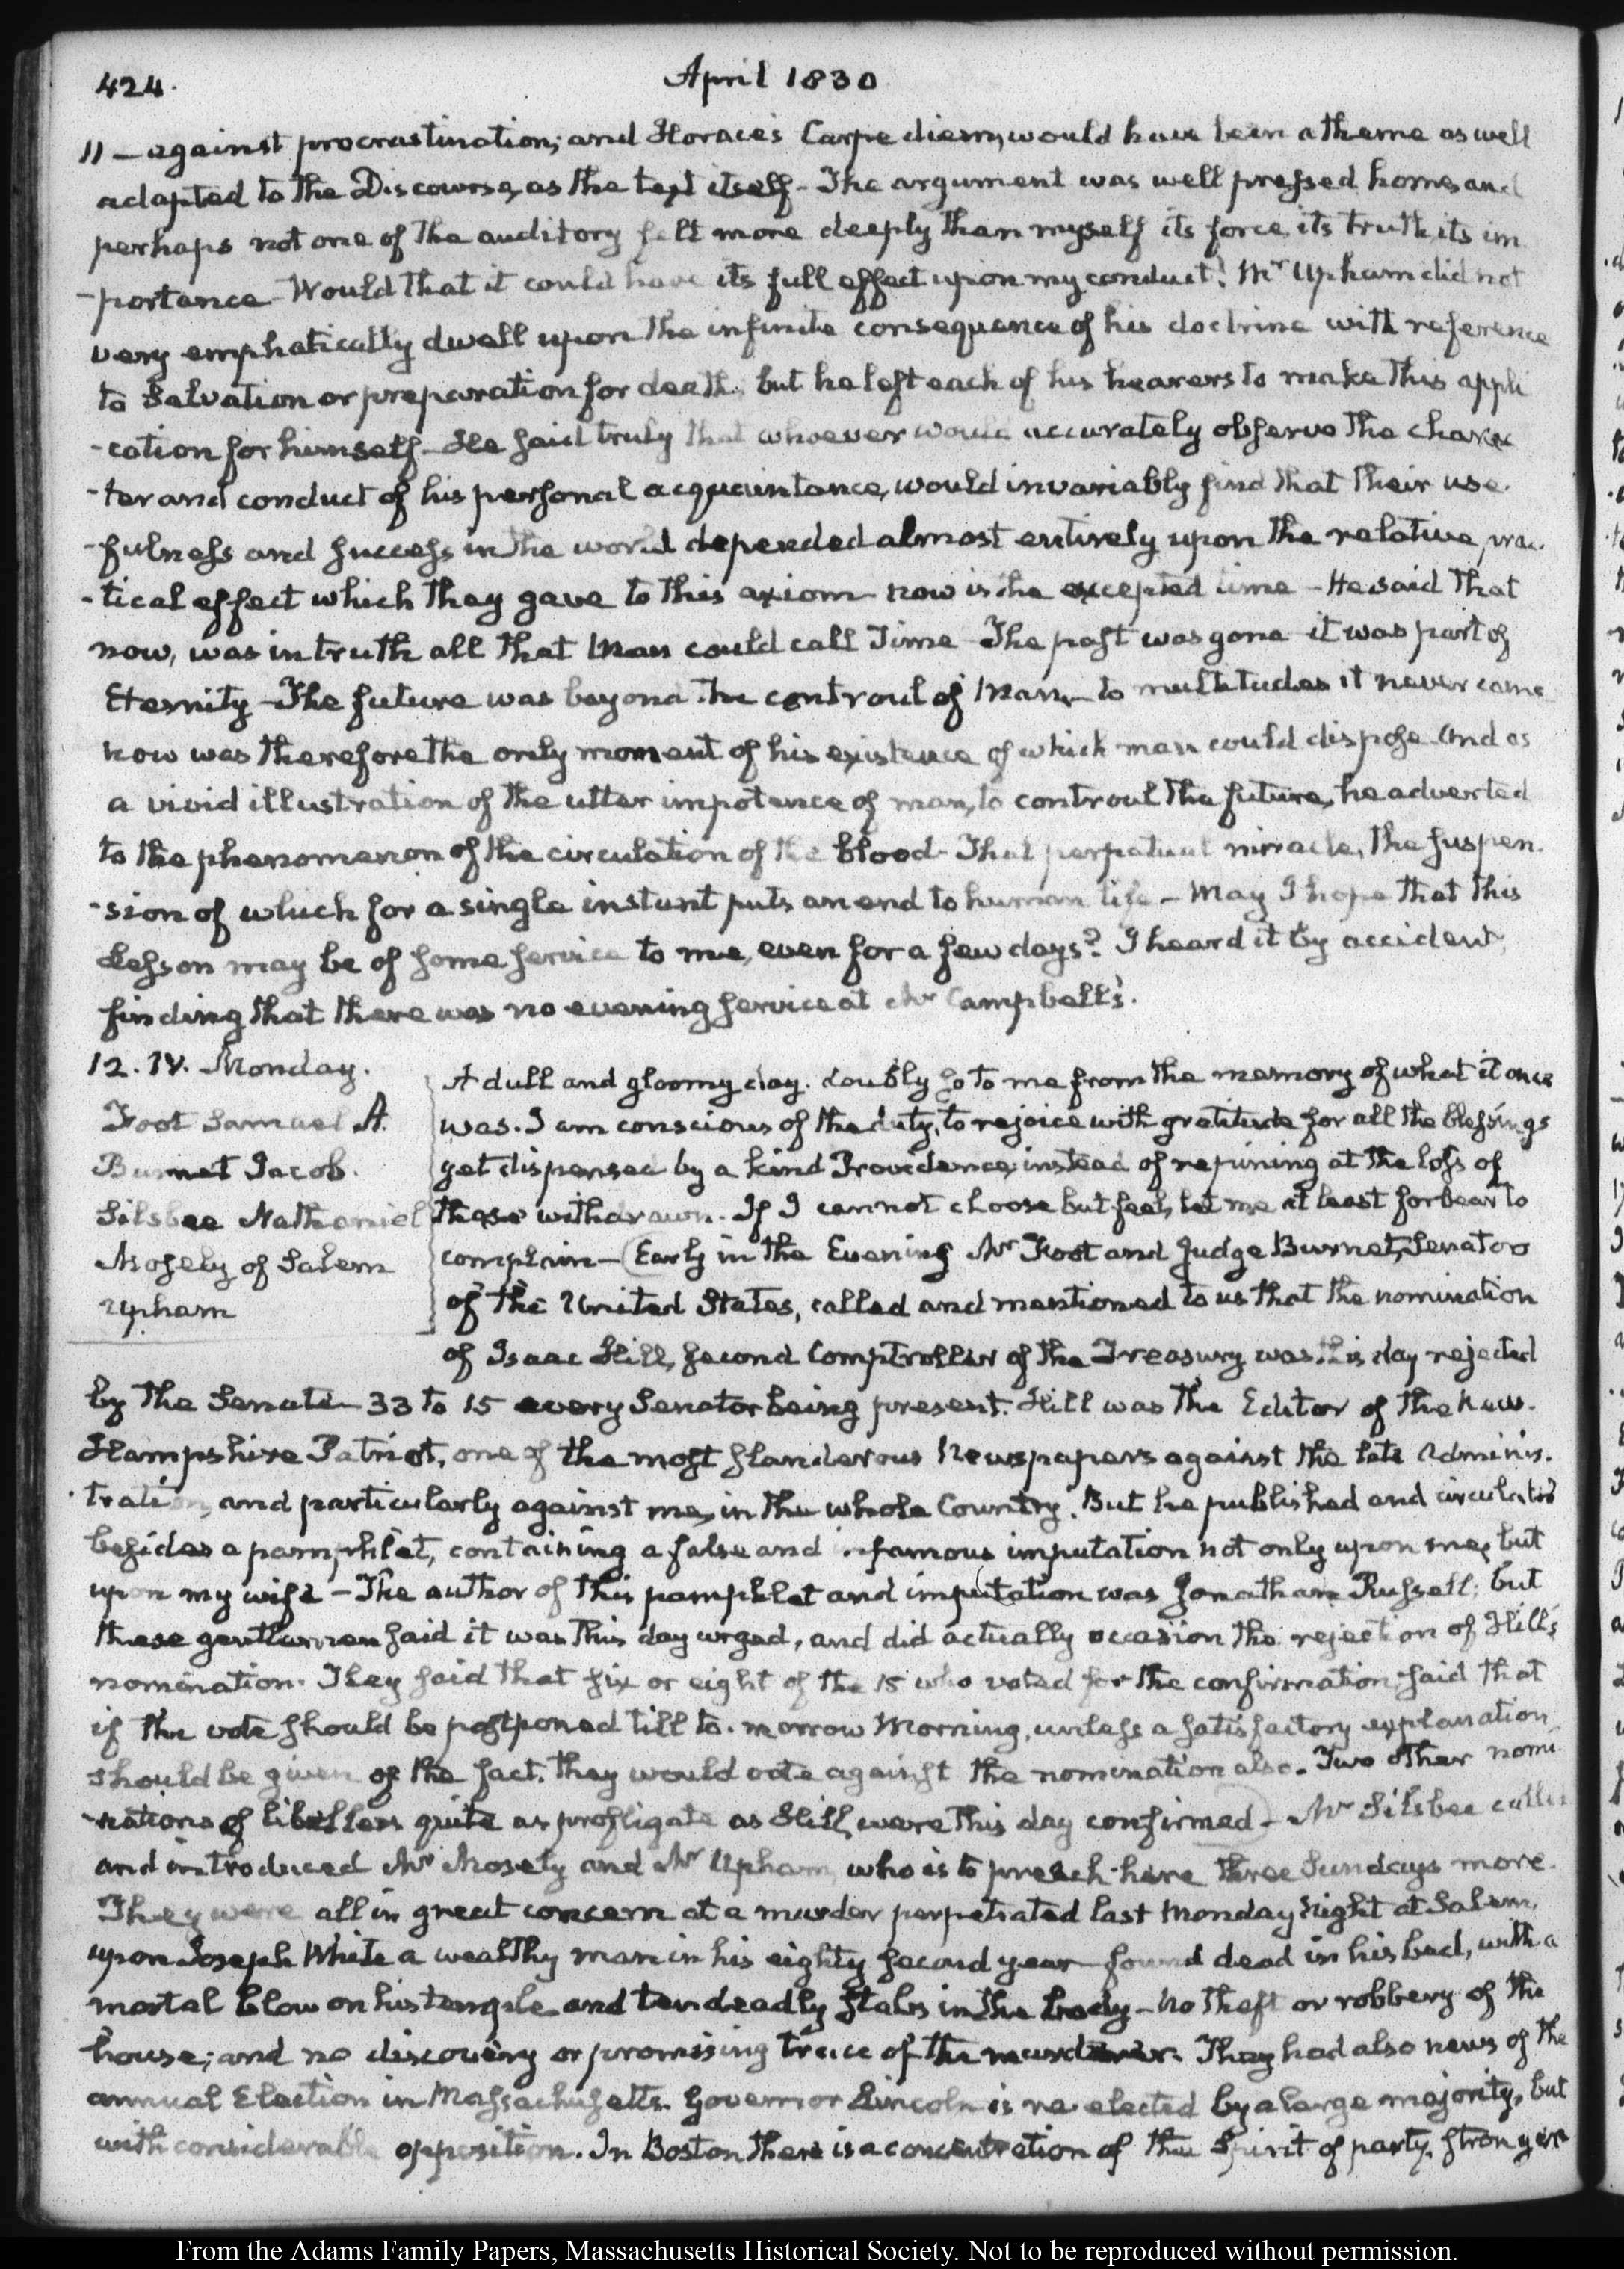 424.
April 1830
11 — against procrastination; and Horace's Carpe diem, would have been a theme as well
adapted to the Discourse, as the text itself - The argument was well pressed home, and
perhaps not one of the auditory felt more deeply than myself its force, its truth, its im
-portance - Would that it could have its full effect upon my conduct! Mr Upham did not
very emphatically dwell upon the infinite consequence of his doctrine with reference
to Salvation or preparation for death; but he left each of his hearers to make this appli
-cation for himself - He said truly that whoever would accurately observe the charac
-ter and conduct of his personal acquaintance, would invariably find that their use-
-fulness and success in the world depended almost entirely upon the relative, prac-
-tical effect which they gave to this axiom - now is the excepted time - He said that
now, was in truth all that Man could call Time - The past was gone - it was part of
Eternity - The future was beyond the controul of Man - to multitudes it never came
now was therefore the only moment of his existence of which man could dispose. And as
a vivid illustration of the utter impotence of man, to controul the future, he adverted
to the phenomenon of the circulation of the blood - That perpetual miracle, the suspen-
-sion of which for a single instant puts an end to human life - May I hope that this
Lesson may be of some service to me, even for a few days? I heard it by accident,
finding that there was no evening service at Mr Campbell's.
12. IV. Monday.
Foot Samuel A.
Burnet Jacob.
Silsbee Nathaniel
Mosely of Salem
Upham
A dull and gloomy day. doubly so to me from the memory of what it once
was. I am conscious of the duty, to rejoice with gratitude for all the blessings
yet dispensed by a kind Providence, instead of repining at the loss of
those withdrawn. If I cannot choose but feel, let me at least forbear to
complain — (Early in the Evening Mr Foot and Judge Burnet, Senators
of the United States, called and mentioned to us that the nomination
of Isaac Hill, second Comptroller of the Treasury was this day rejected
by the Senate - 33 to 15 every Senator being present. Hill was the Editor of the New-
Hampshire Patriot, one of the most slanderous Newspapers against the late Adminis-
-tration, and particularly against me, in the whole Country. But he published and circulated
besides a pamphlet, containing a false and infamous imputation not only upon me, but
upon my wife - The author of this pamphlet and imputation was Jonathan Russell; but
these gentlemen said it was this day urged, and did actually occasion the rejection of Hill's
nomination. They said that six or eight of the 15 who voted for the confirmation said that
if the vote should be postponed till to-morrow Morning, unless a satisfactory explanation
should be given of the fact, they would vote against the nomination also. Two other nomi
-nations of libellers quite as profligate as Hill, were this day confirmed) - Mr Silsbee called
and introduced Mr Mosely and Mr Upham, who is to preach here three Sundays more.
They were all in great concern at a murder perpetrated last Monday Night at Salem,
upon Joseph White a wealthy man in his eighty second year - found dead in his bed, with a
mortal blow on his temple and ten deadly stabs in the body - No theft or robbery of the
house; and no discovery or promising trace of the murderer. They had also news of the
annual Election in Massachusetts. Governor Lincoln is re-elected by a large majority, but
with considerable opposition. In Boston there is a concentration of the Spirit of party, stronger
From the Adams Family Papers, Massachusetts Historical Society. Not to be reproduced without permission.